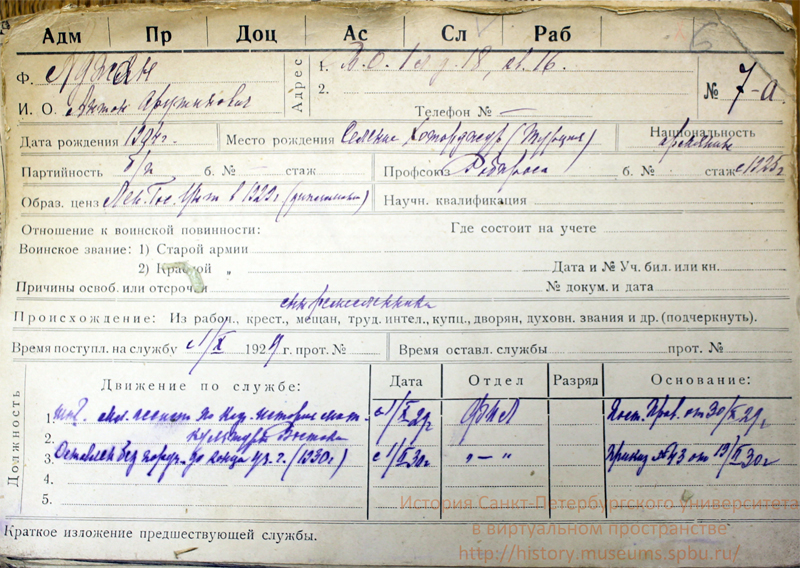 Адм Пр Доц Ас Сл Раб
Ф. Аджян
И. О. Антон Арутинович
Адрес
1. В. О. 1 л. д. 18, кв. 16.
2.
Телефон № —
№ 7-а
Дата рождения 1904 г. Место рождения Селение Хоторджур (Турция) Национальность армянин
Партийность б/п б. № стаж Профсоюз Рабпроса б. № стаж с 1925 г
Образ. ценз Лен. Гос. Ун-т в 1929 г Научн. квалификация
Отношение к воинской повинности: Где состоит на учете
Воинское звание: 1) Старой армии
2) Красной „ Дата и № Уч. бил. или кн.
Причины освоб. или отсрочки № докум. и дата
сын ремесленника
Происхождение: Из рабоч., крест., мещан, труд. интел., купц., дворян, духовн. звания и др. (подчеркнуть).
Время поступл. на службу с 1/X 1929 г. прот. № Время оставл. службы прот. №
Должность
Движение по службе: Дата Отдел Разряд Основание:
1. по каф. истории мат. с 1/X 29г Пост. Прав. от 30/X 29г
2. культуры Востока
3. Оставлен без поруч. до конца уч. г. (1930 г) „ — „ Приказ № 43 от
4.
5.
Краткое изложение предшествующей службы.
История Санкт-Петербургского университета
в виртуальном пространстве
http://history.museums.spbu.ru/